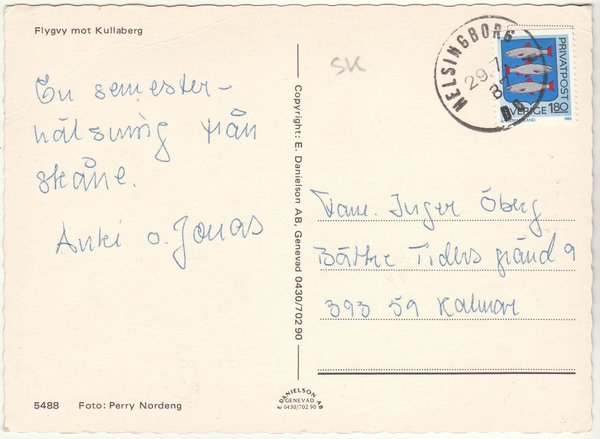 Flygvy mot Kullaberg
En semester-
hälsning från
skåne.
Anki o. Jonas
5488 Foto: Perry Nordeng
Copyright: E. Danielson AB, Genevad 0430/702 90
E. DANIELSON AB
GENEVAD
0430/702 90
SK
HELSINGBORG
29.7
87
PRIVATPOST
SVERIGE 1.80
1985
Fam. Inger Öberg
Bättre Tiders gränd 9
393 59 Kalmar